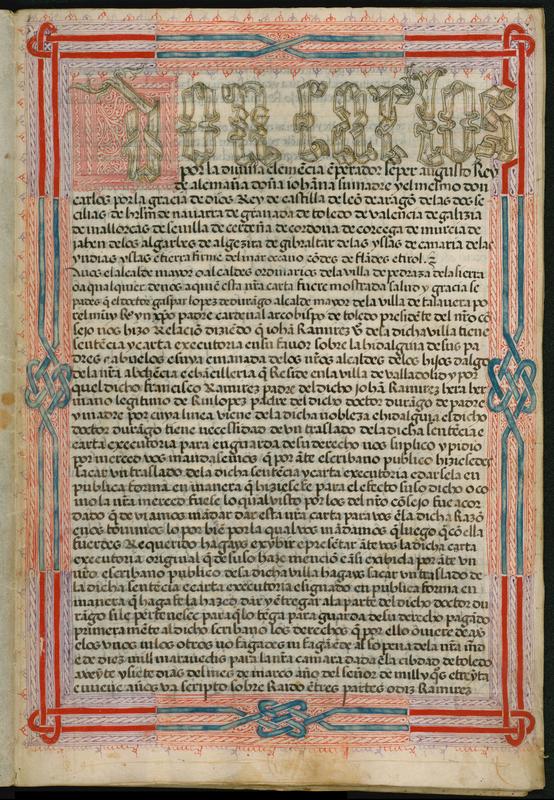 Don carlos
por la diuina clemẽcia ẽperador seper augusto Rey
de alemaña doña iohãna su madre y el mesmo don
carlos por la gracia de dios Rey de castilla de leõ de aragõ de las dos se
cilias de hrl̃m de nauarra de granada de toledo de valencia de galizia
de mallorcas de seuilla de cerdeña de cordoua de corcega de murcia de
jahen de los algarbes de algezira de gibraltar de las yslas de canaria delas
yndias yslas e tierra firme del mar oceano cõdes de flãdes e tirol. ~
A uos el alcalde mayor o alcaldes ordinarios dela villa de pedraza dela sierra
o a qualquier de uos a quiẽ esta nr̃a carta fuere mostrada salud y gracia se
pades q̃ el doctor gaspar lopez de durãgo alcalde mayor de la villa de talauera po
rel muy Rẽ yn xp̃o padre cardenal arcobispo de toledo presidẽte del nr̃o cõ
sejo nos hizo Relaciõ diziẽdo q̃ iohã Ramirez vº dela dicha villa tiene
sentẽcia y carta executoria en su fauor sobre la hidalguia de sus pa
dres e abuelos e suya emanada de los nr̃os alcaldes delos hijos dalgo
dela nr̃a abdiẽcia e chãcilleria q̃ Reside en la villa de valladolid y por
quel dicho francisco Ramirez padre del dicho johã Ramirez hera her
mano legitimo de Rui lopez padre del dicho doctor durãgo de padre
y madre por cuya linea viene dela dicha nobleza e hidalguia el dicho
doctor durãgo tiene necessidad de vn traslado dela dicha sentẽcia e
carta executoria para en guarda de su derecho nos suplico y pidio
por merced vos mandasemos q̃ por ãte escribano publico hiziesedes
sacar vn traslado dela dicha sentẽcia y carta executoria e dar sela en
publica forma en manera q̃ hiziese fe para el efecto suso dicho o co
mo la nr̃a merced fuese lo qual visto por los del nr̃o cõsejo fue acor
dado q̃ deuiamos mãdar dar esta nr̃a carta para vos ẽla dicha Razõ
e nos touimos lo por biẽ por la qual vos mãdamos q̃ luego q̃ cõ ella
fuerdes Requerido hagays exybir e presẽtar ãte vos la dicha carta
executoria original q̃ de suso haze menciõ e ãsi exibida por ãte vn
nr̃o escribano publico desa dicha villa hagays sacar vn traslado de
la dicha sentẽcia e carta executoria e signado en publica forma en
manera q̃ haga fe la hazed dar y ẽtregar ala parte del dicho doctor du
rãgo si le pertenesce para q̃ lo tẽga para guarda de su derecho pagãdo
primera mẽte al dicho scribano los derechos q̃ por ello ouiere de aver
e los vnos ni los otros no fagades ni fagã ẽde al so pena dela nr̃a mr̃d
e de diez mill marauedis para la nr̃a camara dada ẽla cibdad de toledo
a veyte y siete dias del mes de março año del señor de mill y qºs e treyta
e nueue años va scripto sobre Raido ẽtres partes o diz Ramirez